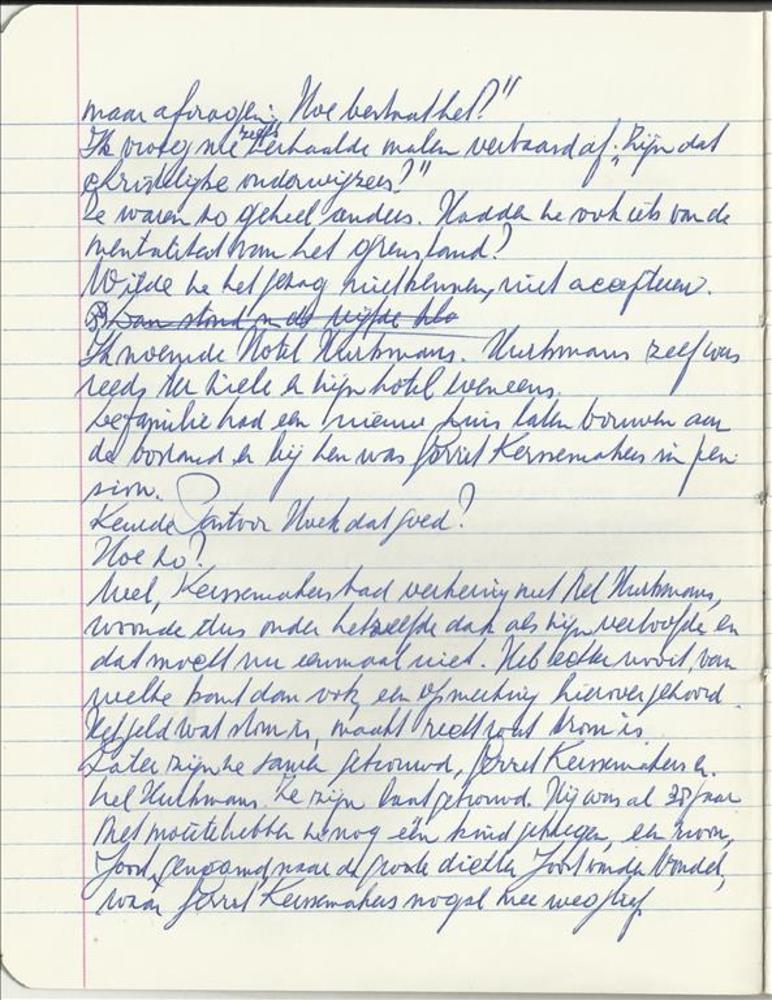 maar afvragen: Hoe bestaat het?"
Ik vroeg me zelfs herhaalde malen verbaasd af: "Zijn dat
christelijke onderwijzers?"
Ze waren zo geheel anders. Hadden ze ook iets van de
mentaliteit van het grensland?
Wilde ze het gezag niet kennen, niet accepteren.
Dan stond in de vijfde kla
Ik noemde Hotel Hurkmans. Hurkmans zelf was
reeds ter ziele en zijn hotel eveneens.
De familie had een nieuw huis laten bouwen aan
de bosrand en bij hen was Gerrit Kerssemakers in pen-
sion.
Kende Pastoor Hoek dat goed?
Hoe zo?
Wel, Kerssemakers had verkering met Nel Hurkmans,
woonde dus onder hetzelfde dak als zijn verloofde en
dat mocht nu eenmaal niet. Heb echter nooit, van
welke kant dan ook, een opmerking hierover gehoord.
Het geld wat stom is, maakt recht wat krom is.
Later zijn ze samen getrouwd, Gerrit Kerssemakers en
Nel Hurkmans. Ze zijn laat getrouwd. Hij was al 38 jaar
Met moeite hebben ze nog één kind gekregen, een zoon,
Joost, genoemd naar de grote dichter Joost van den Vondel,
waar Gerrit Kerssemakers nogal mee wegliep.